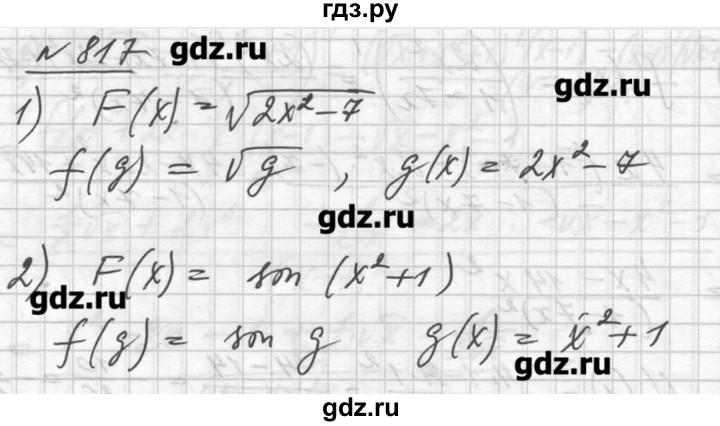 гдз.ру
№ 817 gdz.ru
gdz.ru
1) F(x) = √(2x² - 7)
f(g) = √g , g(x) = 2x² - 7
gdz.ru
2) F(x) = son (x² + 1)
gdz.ru
f(g) = son g g(x) = x² + 1
gdz.ru
gdz.ru